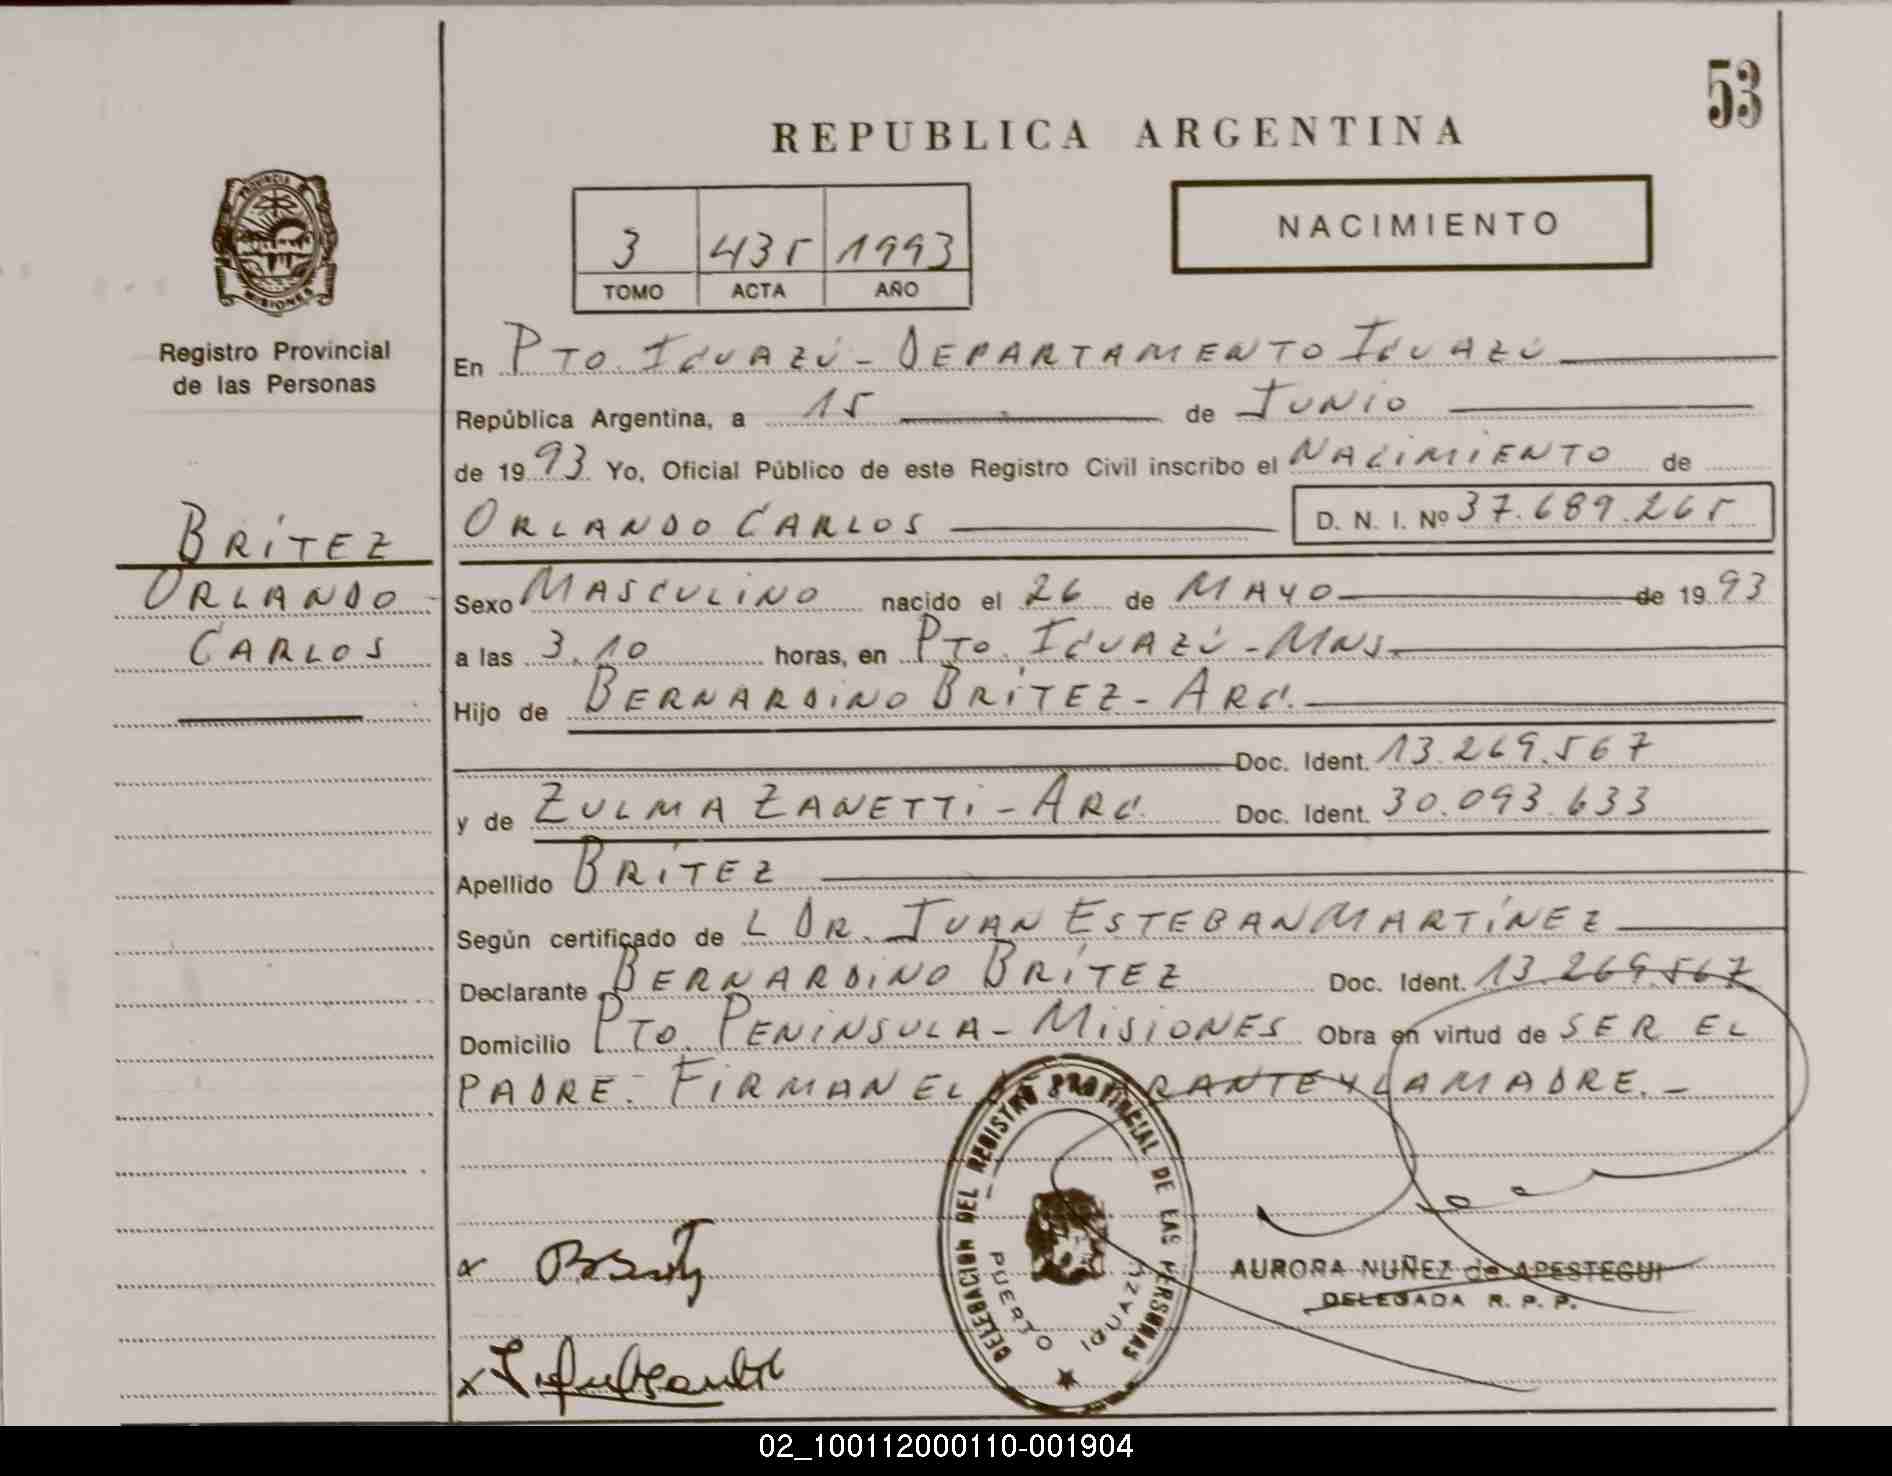 53
REPUBLICA ARGENTINA
PROVINCIA DE
MISIONES
Registro Provincial
de las Personas
3 435 1993
TOMO ACTA AÑO
NACIMIENTO
En PTO. IGUAZÚ - DEPARTAMENTO IGUAZÚ
República Argentina, a 15 de JUNIO
de 1993 Yo, Oficial Público de este Registro Civil inscribo el NACIMIENTO de
ORLANDO CARLOS D. N. I. Nº 37.689.265
BRÍTEZ
ORLANDO
CARLOS
Sexo MASCULINO nacido el 26 de MAYO de 1993
a las 3.10 horas, en PTO. IGUAZÚ - MNS.
Hijo de BERNARDINO BRÍTEZ - ARG.
Doc. Ident. 13.269.567
y de ZULMA ZANETTI - ARG. Doc. Ident. 30.093.633
Apellido BRÍTEZ
Según certificado de L DR. JUAN ESTEBAN MARTÍNEZ
Declarante BERNARDINO BRÍTEZ Doc. Ident. 13.269.567
Domicilio PTO. PENÍNSULA - MISIONES Obra en virtud de SER EL
PADRE. FIRMAN EL DECLARANTE Y LA MADRE. -
DELEGACION DEL REGISTRO PROVINCIAL DE LAS PERSONAS
PUERTO IGUAZU
AURORA NUÑEZ de APESTEGUI
DELEGADA R. P. P.
x
x
02_100112000110-001904